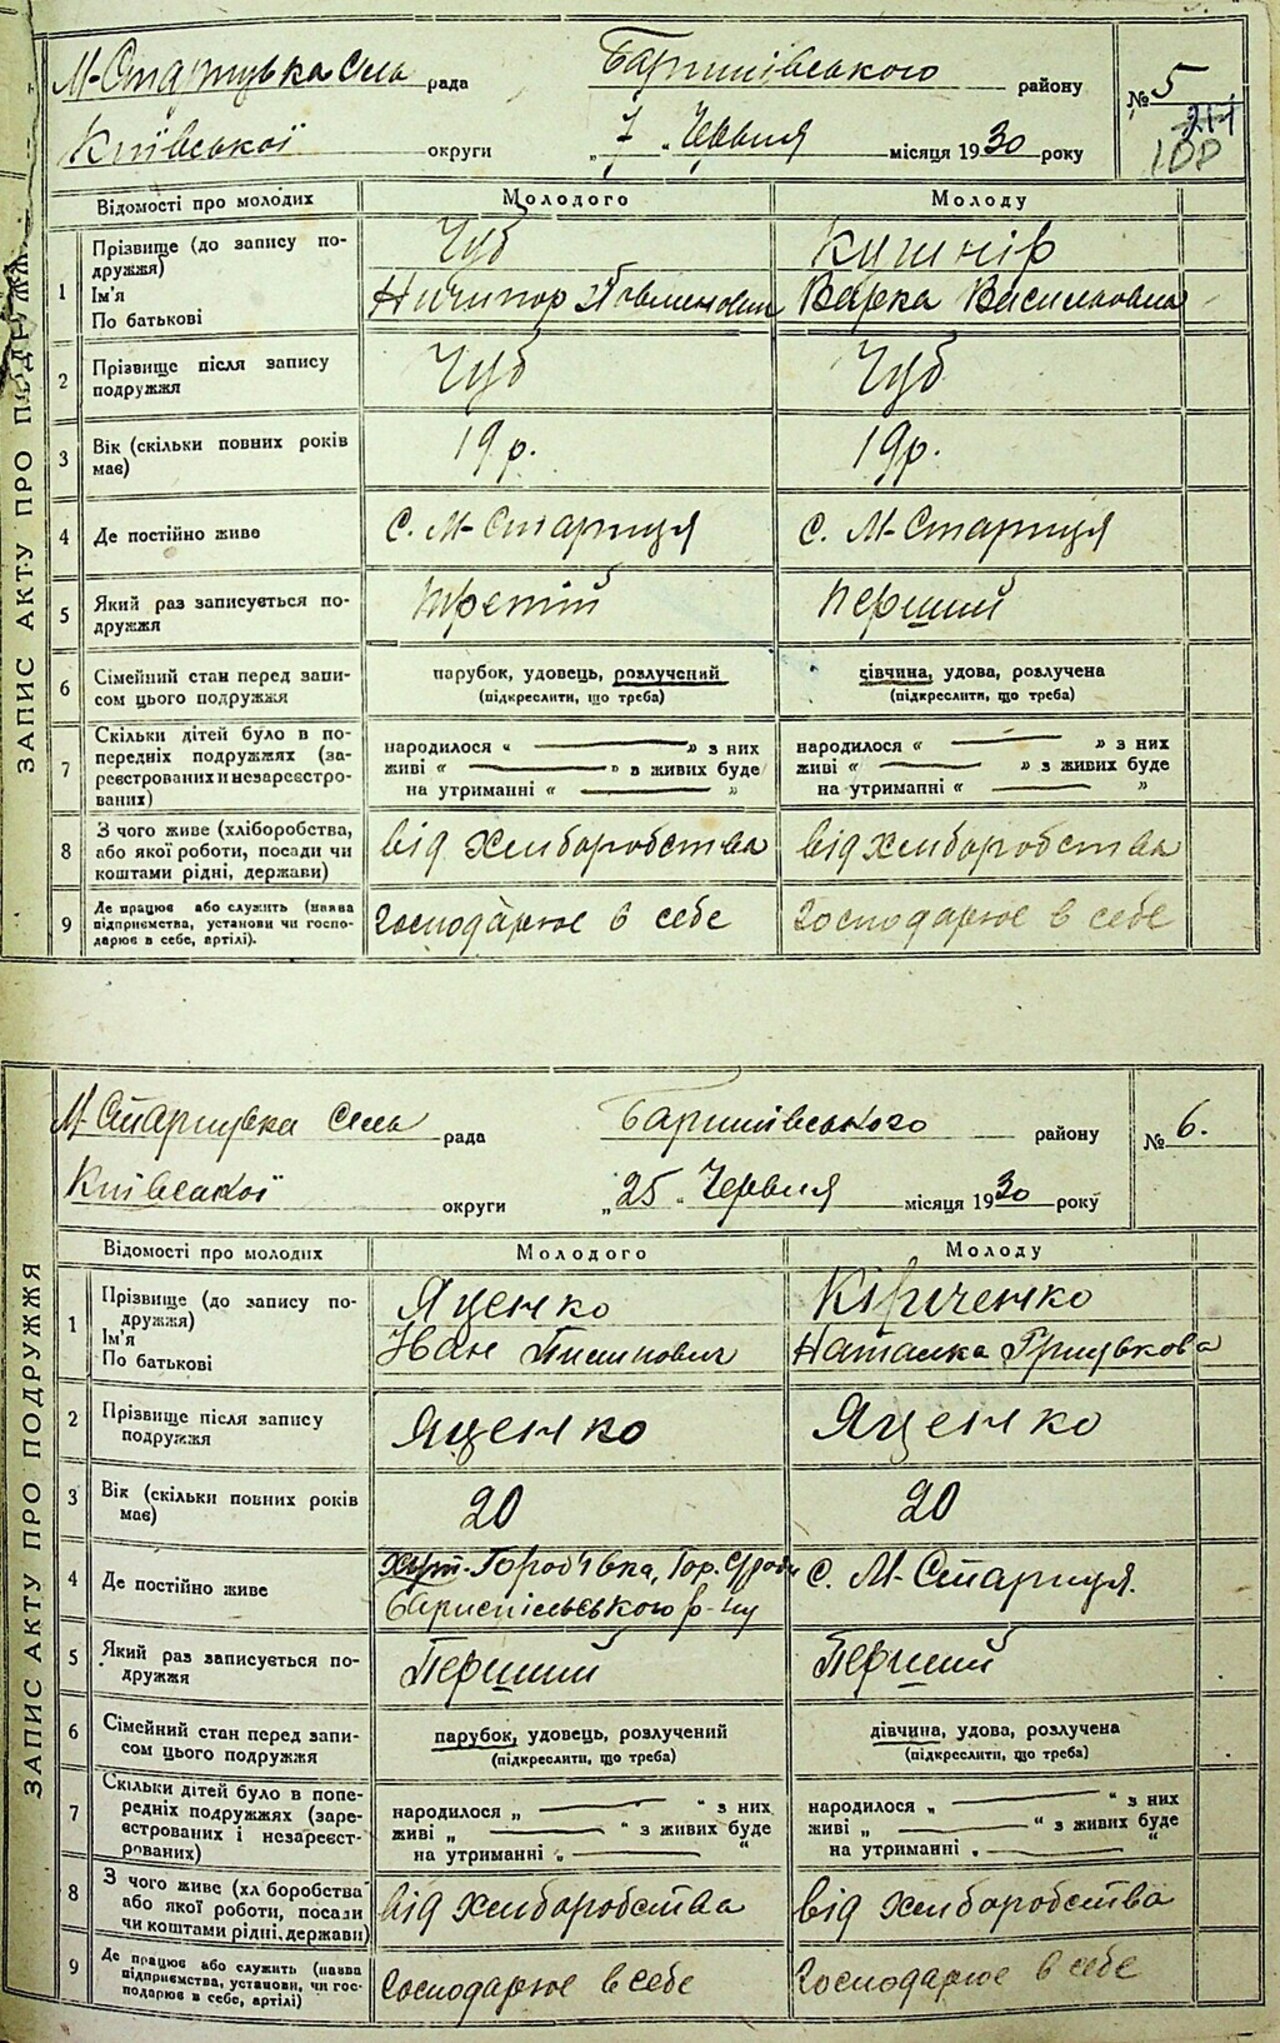 М-Старицька Сіль рада Баришівського району № 5
211
108
Київської округи „7“ Червня місяця 1930 року
ЗАПИС АКТУ ПРО ПОДРУЖЖЯ
Відомості про молодих Молодого Молоду
1 Прізвище (до запису по- Чуб Кушнір
дружжя)
Ім'я Ничипор Варка Васильовна
По батькові
2 Прізвище після запису Чуб Чуб
подружжя
3 Вік (скільки повних років 19 р. 19 р.
має)
4 Де постійно живе С. М-Стариця С. М-Стариця
5 Який раз записується по- третій перший
дружжя
6 Сімейний стан перед запи- парубок, удовець, розлучений дівчина, удова, розлучена
сом цього подружжя (підкреслити, що треба) (підкреслити, що треба)
7 Скільки дітей було в по-
передніх подружжях (за- народилося « — » з них народилося « — » з них
реєстрованих и незареєстро- живі « — » в живих буде живі « — » з живих буде
ваних) на утриманні « — » на утриманні « — »
8 З чого живе (хліборобства,
або якої роботи, посади чи від хлиборобства від хлиборобства
коштами рідні, держави)
9 Де працює або служить (назва
підприємства, установи чи госпо- господарює в себе господарює в себе
дарює в себе, артілі).
М-Старицька Сіль рада Баришівського району № 6.
Київської округи „25“ Червня місяця 1930 року
ЗАПИС АКТУ ПРО ПОДРУЖЖЯ
Відомості про молодих Молодого Молоду
1 Прізвище (до запису по- Яценко Кірієнко
дружжя)
Ім'я Іван Пилипович Наталка Грицькова
По батькові
2 Прізвище після запису Яценко Яценко
подружжя
3 Вік (скільки повних років 20 20
має)
4 Де постійно живе хут. Гор. С. М-Стариця.
Бариспільського р-ну
5 Який раз записується по- Перший Перший
дружжя
6 Сімейний стан перед запи- парубок, удовець, розлучений дівчина, удова, розлучена
сом цього подружжя (підкреслити, що треба) (підкреслити, що треба)
7 Скільки дітей було в попе-
редніх подружжях (заре- народилося „ — “ з них народилося „ — “ з них
єстрованих і незареєст- живі „ — “ з живих буде живі „ — “ з живих буде
рованих) на утриманні „ — “ на утриманні „ — “
8 З чого живе (хл боробства
або якої роботи, посади від хлиборобства від хлиборобства
чи коштами рідні, держави)
9 Де працює або служить (назва
підприємства, установи, чи гос- господарює в себе господарює в себе
подарює в себе, артілі)